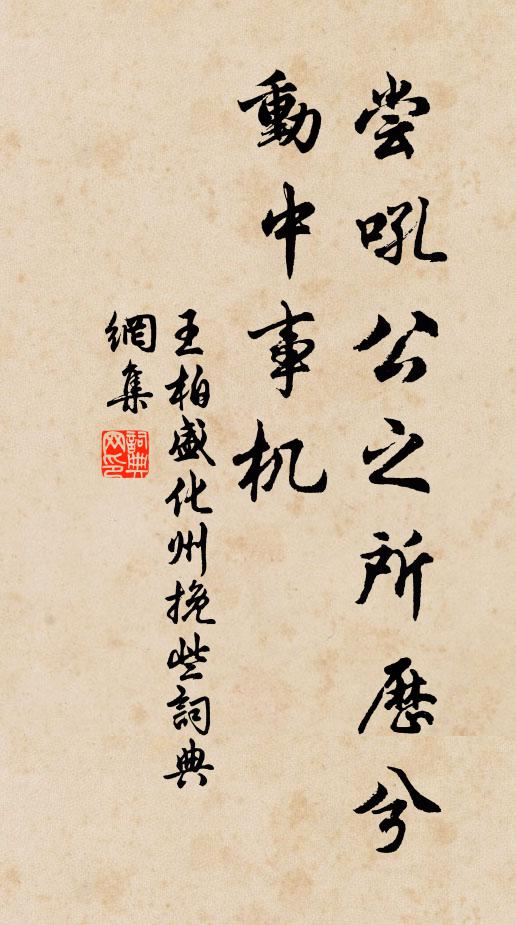 尝吼公之所历兮
動中事机
王柏盛化州挽些詞典
網集
詞典
网印